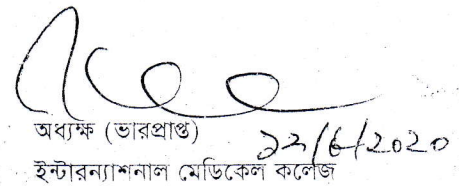 অধ্যক্ষ (ভারপ্রাপ্ত)
২২/6/2020
ইন্টারন্যাশনাল মেডিকেল কলেজ